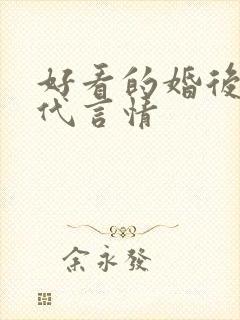 好看的婚後
代言情
余永發